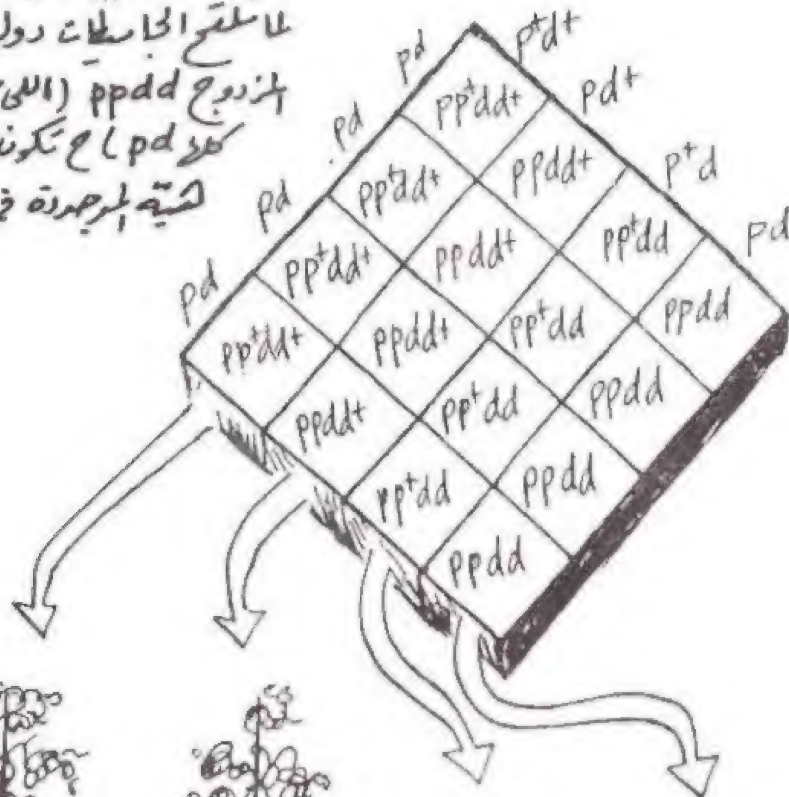 لما نلقح الجاميطات دول
المزدوج ppdd (اللي
كلها pd) ح تكون
الموجودة في
pd p⁺d⁺
pd pp⁺dd⁺ pd⁺
pd pp⁺dd⁺ ppdd⁺ p⁺d
pd pp⁺dd⁺ ppdd⁺ pp⁺dd pd
pp⁺dd⁺ ppdd⁺ pp⁺dd ppdd
ppdd⁺ pp⁺dd ppdd
pp⁺dd ppdd
ppdd